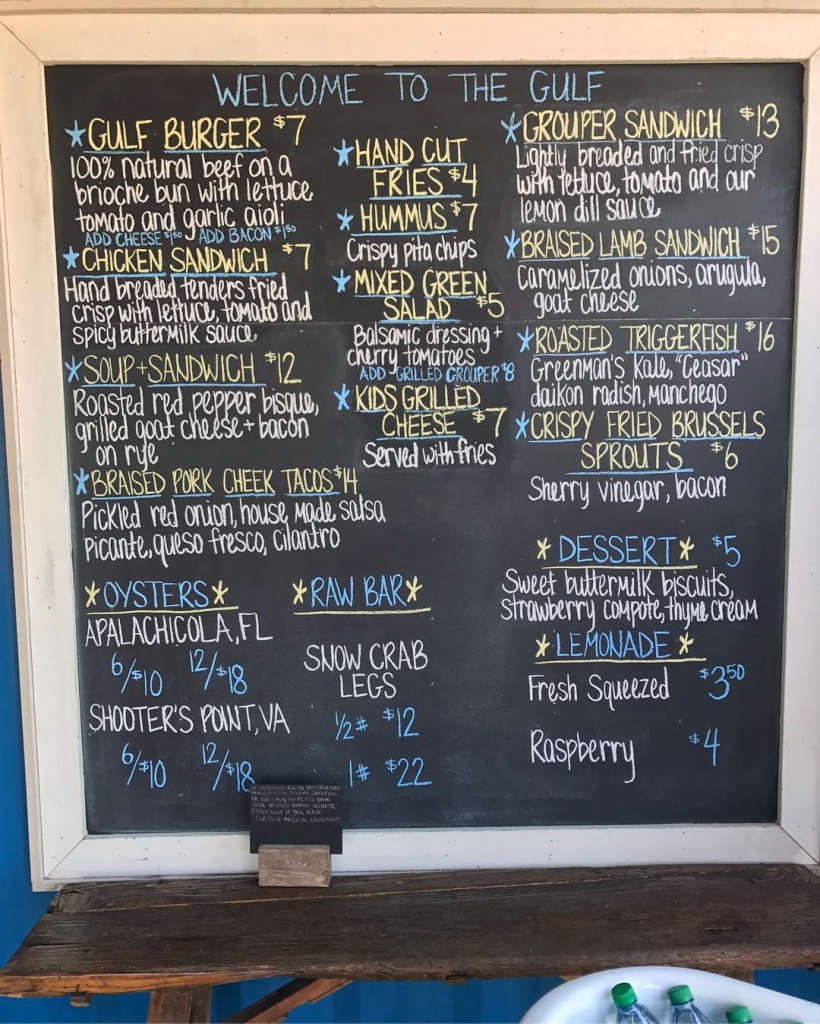 WELCOME TO THE GULF
*GULF BURGER $7
100% natural beef on a
brioche bun with lettuce
tomato and garlic aioli
ADD CHEESE $1.50 ADD BACON $1.50
*CHICKEN SANDWICH $7
Hand breaded tenders fried
crisp with lettuce, tomato and
spicy buttermilk sauce
*SOUP+SANDWICH $12
Roasted red pepper bisque,
grilled goat cheese+bacon
on rye
*BRAISED PORK CHEEK TACOS $14
Pickled red onion, house made salsa
picante, queso fresco, cilantro
*HAND CUT
FRIES $4
*HUMMUS $7
Crispy pita chips
*MIXED GREEN
SALAD $5
Balsamic dressing+
cherry tomatoes
ADD-GRILLED GROUPER $8
*KIDS GRILLED
CHEESE $7
Served with fries
*GROUPER SANDWICH $13
Lightly breaded and fried crisp
with lettuce, tomato and our
lemon dill sauce
*BRAISED LAMB SANDWICH $15
Caramelized onions, arugula,
goat cheese
*ROASTED TRIGGERFISH $16
Greenman's Kale, "Ceasar"
daikon radish, Manchego
*CRISPY FRIED BRUSSELS
SPROUTS $6
Sherry vinegar, bacon
*OYSTERS*
APALACHICOLA, FL
6/$10 12/$18
SHOOTER'S POINT, VA
6/$10 12/$18
*RAW BAR*
SNOW CRAB
LEGS
1/2# $12
1# $22
*DESSERT* $5
Sweet buttermilk biscuits,
strawberry compote, thyme cream
*LEMONADE*
Fresh Squeezed $3.50
Raspberry $4
MEATS, POULTRY, SEAFOOD, SHELLFISH,
OR EGGS MAY INCREASE YOUR
RISK OF FOOD BORNE ILLNESS,
ESPECIALLY IF YOU HAVE
CERTAIN MEDICAL CONDITIONS